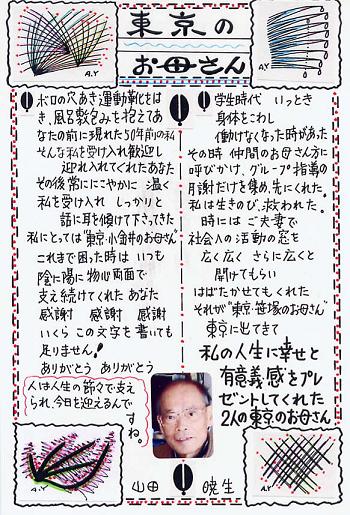 東京の
お母さん
A.Y
A.Y
ボロの穴あき運動靴をは
き、風呂敷包みを抱えてあ
なたの前に現れた50年前の私
そんな私を受け入れ歓迎し
迎え入れてくれたあなた
その後常ににこやかに 温く
私を受け入れ しっかりと
話に耳を傾けて下さってきた
私にとっては"東京・小金井のお母さん"
これまで困った時は いつも
陰に陽に物心両面で
支え続けてくれた あなた
感謝 感謝 感謝
いくら この文字を書いても
足りません!
ありがとう ありがとう
人は人生の節々で支え
られ、今日を迎えるんで
すね。
学生時代 いっとき
身体をこわし
働けなくなった時があった
その時 仲間のお母さん方に
呼びかけ、グループ指導の
月謝だけを集め、先にくれた。
私は生きのび、救われた。
時には ご夫妻で
社会への活動の窓を
広く 広く さらに広くと
開けてもらい
はばたかせてもくれた
それが"東京・笹塚のお母さん"
東京に出てきて
私の人生に幸せと
有意義感をプレ
ゼントしてくれた
2人の東京のお母さん
A.Y
山田 暁生
A.Y